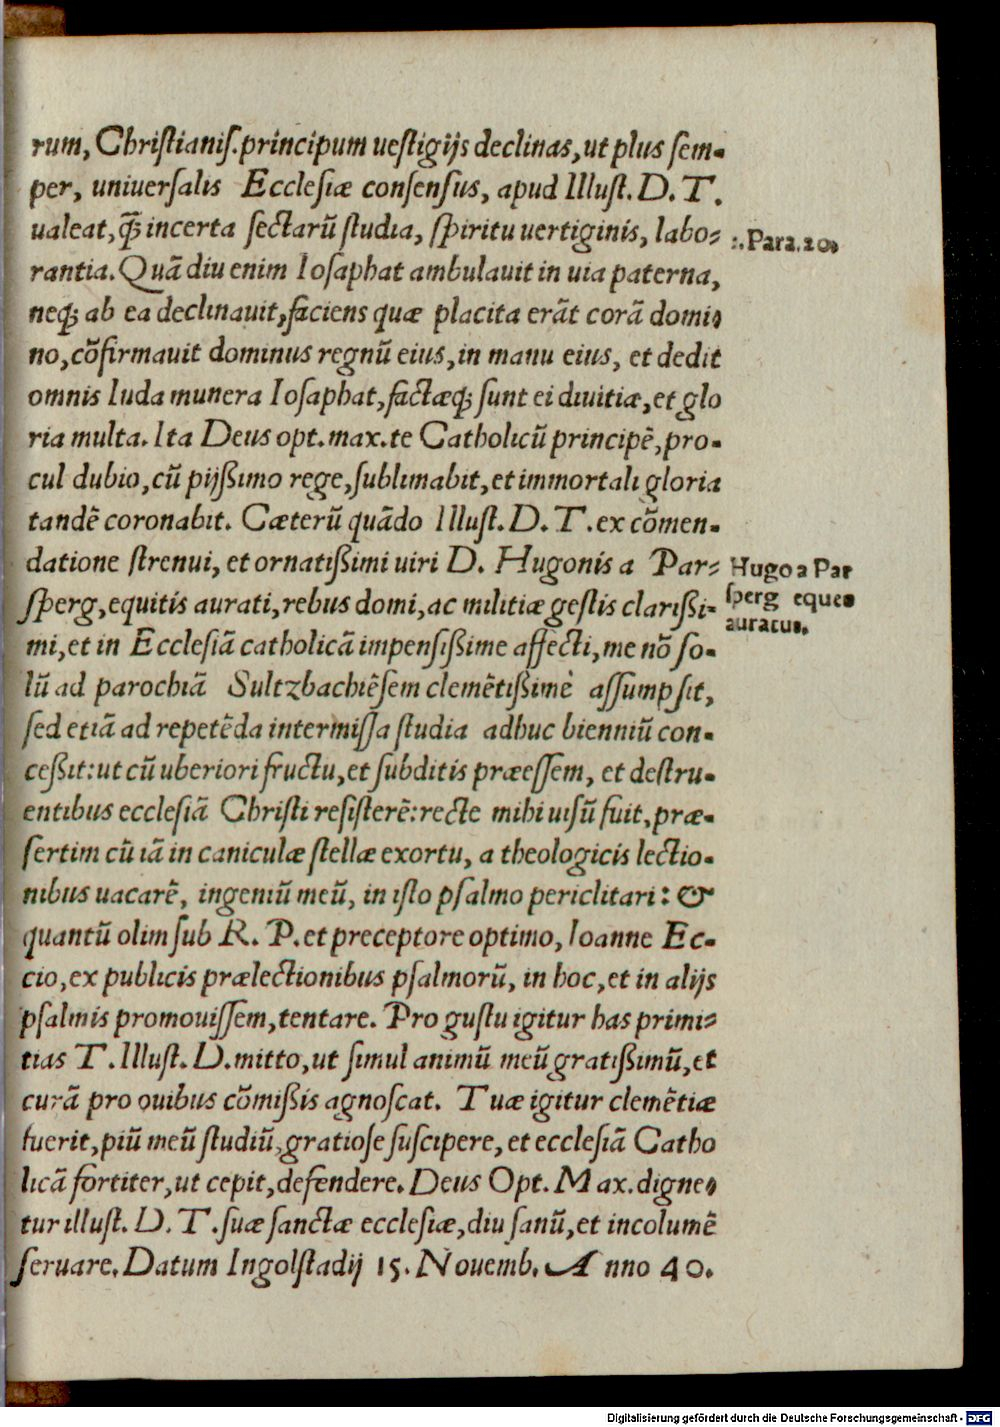 rum, Christianiſ. principum ueſtigijs declinas, ut plus ſem-
per, uniuerſalis Eccleſiæ conſenſus, apud Illuſt. D. T.
ualeat, q̃ incerta ſectarũ ſtudia, ſpiritu uertiginis, labo-
2. Para. 20.
rantia. Quã diu enim Ioſaphat ambulauit in uia paterna,
neq; ab ea declinauit, faciens quæ placita erãt corã domi-
no, cõfirmauit dominus regnũ eius, in manu eius, et dedit
omnis Iuda munera Ioſaphat, factæq; ſunt ei diuitiæ, et glo
ria multa. Ita Deus opt. max. te Catholicũ principẽ, pro-
cul dubio, cũ pijßimo rege, ſublimabit, et immortali gloria
tandẽ coronabit. Cæterũ quãdo Illuſt. D. T. ex cõmen-
datione ſtrenui, et ornatißimi uiri D. Hugonis a Par-
Hugo a Par
ſperg, equitis aurati, rebus domi, ac militiæ geſtis clarißi-
ſperg eques
auratus.
mi, et in Eccleſiã catholicã impenſißime affecti, me nõ ſo-
lũ ad parochiã Sultzbachiẽſem clemẽtißimè aſſumpſit,
ſed etiã ad repetẽda intermiſſa ſtudia adhuc bienniũ con-
ceßit: ut cũ uberiori fructu, et ſubditis præeſſem, et deſtru-
entibus eccleſiã Chriſti reſiſterẽ: recte mihi uiſũ fuit, præ-
ſertim cũ iã in caniculæ ſtellæ exortu, a theologicis lectio-
nibus uacarẽ, ingeniũ meũ, in iſto pſalmo periclitari: &
quantũ olim ſub R. P. et preceptore optimo, Ioanne Ec-
cio, ex publicis prælectionibus pſalmorũ, in hoc, et in alijs
pſalmis promouiſſem, tentare. Pro guſtu igitur has primi-
tias T. Illuſt. D. mitto, ut ſimul animũ meũ gratißimũ, et
curã pro ouibus cõmißis agnoſcat. Tuæ igitur clemẽtiæ
fuerit, piũ meũ ſtudiũ, gratioſe ſuſcipere, et eccleſiã Catho
licã fortiter, ut cepit, defendere. Deus Opt. Max. digne-
tur illuſt. D. T. ſuæ ſanctæ eccleſiæ, diu ſanũ, et incolumẽ
ſeruare. Datum Ingolſtadij 15. Nouemb. Anno 40.
Digitalisierung gefördert durch die Deutsche Forschungsgemeinschaft - DFG